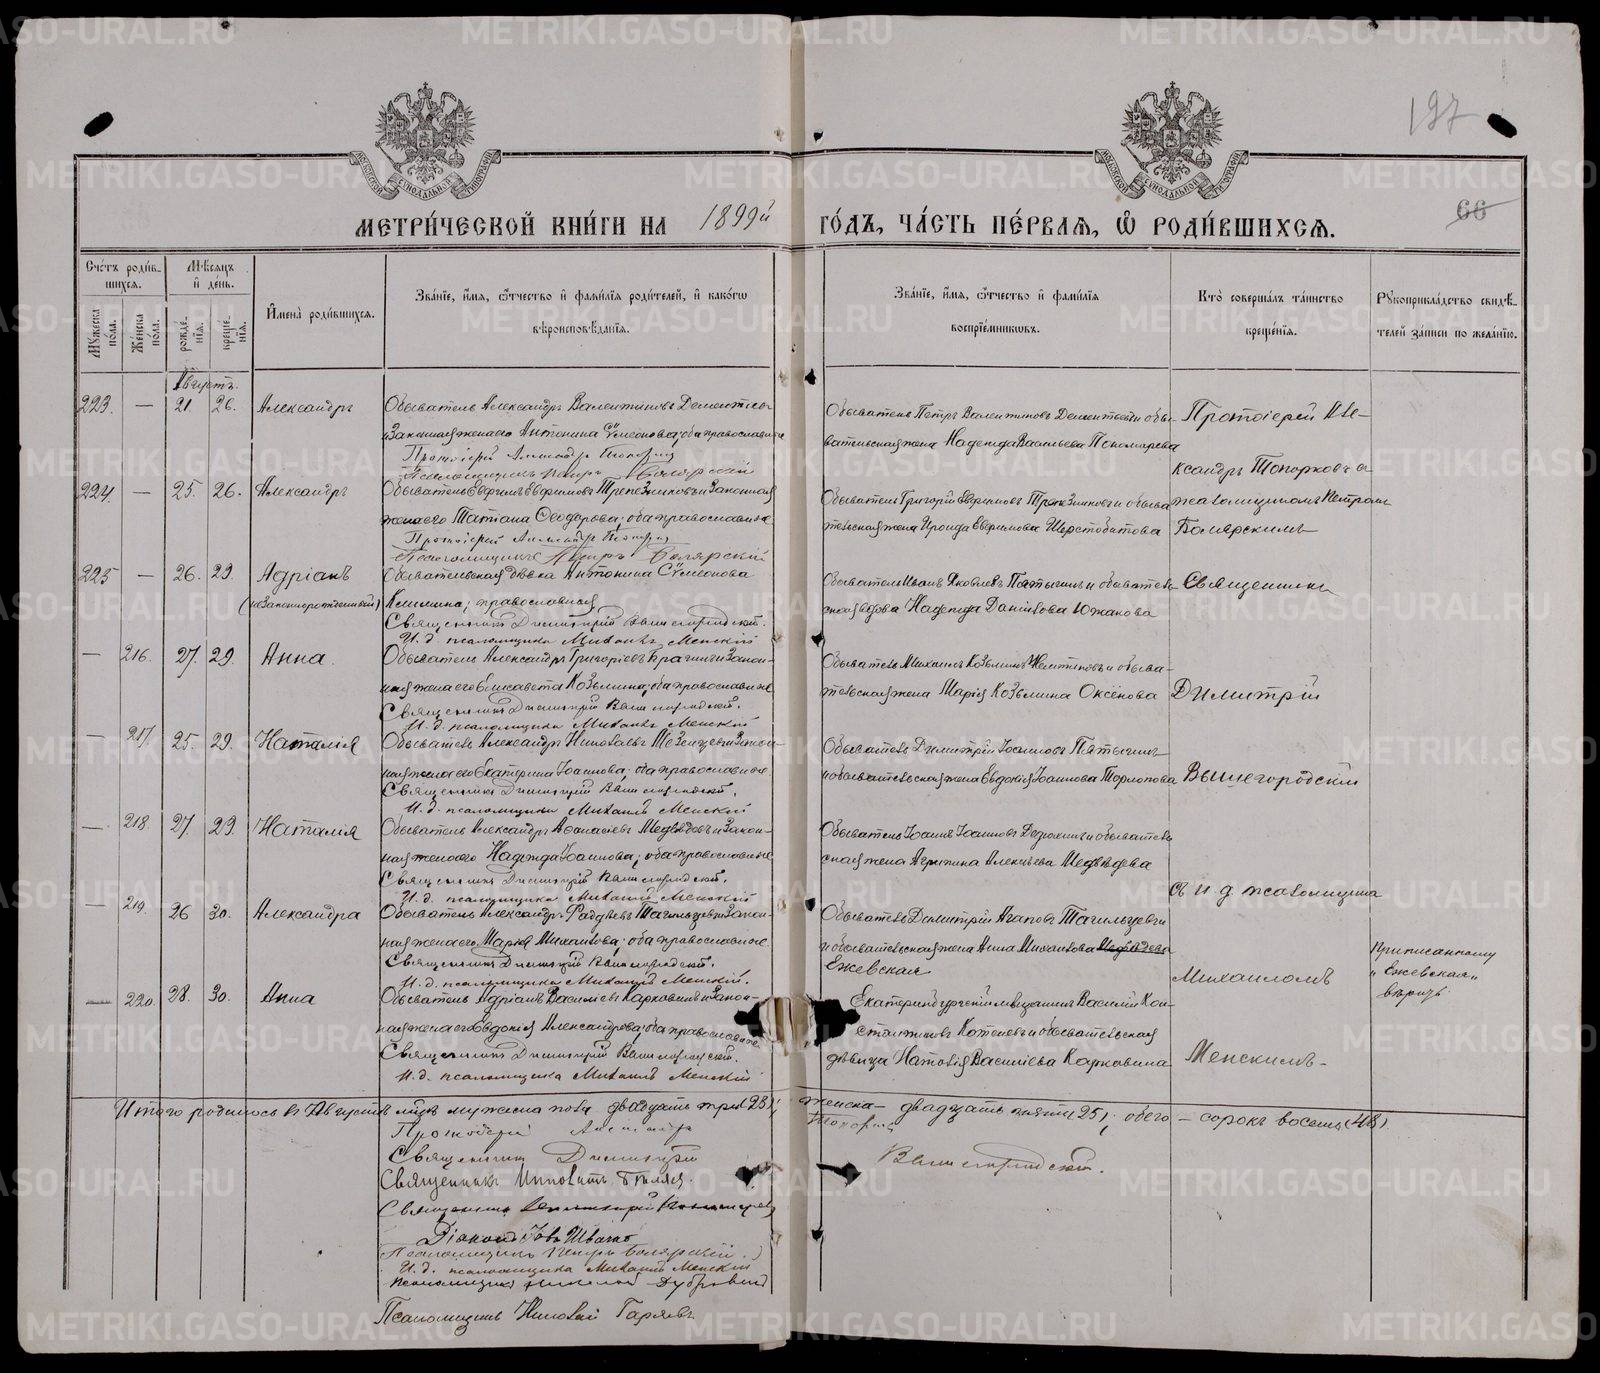 197
МЕТРИ́ЧЕСКОЙ КНИ́ГИ НА 1899й ГО́ДЪ, ЧА́СТЬ ПЕ́РВАЯ, Ѡ҆ РОДИ́ВШИХСЯ.
66
Сче́тъ роди́в-
шихся.
Мѣ́сяцъ
и҆ де́нь.
И҆мена̀ роди́вшихся.
Зва́нїе, и҆́мя, ѻ҆́тчество и҆ фами́лїя роди́телей, и҆ како́гѡ
вѣроисповѣ́данїя.
Зва́нїе, и҆́мя, ѻ҆́тчество и҆ фами́лїя
воспрїе́мникѡвъ.
Кто̀ соверша́лъ та́инство
креще́нїя.
Рꙋкоприкла́дство свидѣ́-
телей за́писи по жела́нїю.
Мꙋ́жеска
по́ла.
Же́нска
по́ла.
рожде́-
нїя.
креще́-
нїя.
Августъ.
223. — 21. 26. Александръ
Обыватель Александръ Валентиновъ Дементьевъ
и законная жена его Антонина Сѵмеонова; оба православные
Протоіерей Александръ Топорковъ
Псаломщикъ Петръ Болярскій
Обыватель Петръ Валентиновъ Дементьевъ и обы-
вательская жена Надежда Васильева Пономарева
Протоіерей Але-
ксандръ Топорковъ съ
224. — 25. 26. Александръ
Обыватель Евфимъ Евфимовъ Трапезниковъ и законная
жена его Татіана Ѳеодорова; оба православные
Протоіерей Александръ Топорковъ
Псаломщикъ Петръ Болярскій
Обыватель Григорій Евфимовъ Трапезниковъ и обыва-
тельская жена Ироида Евфимова Шерстобитова
псаломщикомъ Петромъ
Болярскимъ
225 — 26. 29. Адріанъ
(незаконнорожденный)
Обывательская дѣвка Антонина Сѵмеонова
православная
Священникъ Димитрій Вышегородскій.
И. д. псаломщика Михаилъ Менскій
Обыватель Иванъ Яковлевъ Пятыгинъ и обыватель-
ская вдова Надежда Данилова Южакова
Священникъ
— 216. 27. 29. Анна
Обыватель Александръ Григоріевъ Брагинъ и закон-
ная жена его Елисавета Козьмина; оба православные
Священникъ Димитрій Вышегородскій.
И. д. псаломщика Михаилъ Менскій
Обыватель Михаилъ Козьминъ и обыва-
тельская жена Марія Козьмина Оксёнова
Димитрій
— 217 25. 29. Наталія
Обыватель Александръ Николаевъ Мезенцевъ и закон-
ная жена его Екатерина Іоаннова; оба православные.
Священникъ Димитрій Вышегородскій.
И. д. псаломщика Михаилъ Менскій
Обыватель Димитрій Іоанновъ Пятыгинъ
и обывательская жена Евдокія Іоаннова Торлопова
Вышегородскій
— 218. 27 29. Наталія
Обыватель Александръ Аѳанасіевъ Медвѣдевъ и закон-
ная жена его Надежда Іоаннова; оба православные
Священникъ Димитрій Вышегородскій.
И. д. псаломщика Михаилъ Менскій
Обыватель Іоаннъ Іоанновъ и обыватель-
ская жена Агрипина Алексѣева Медвѣдева
съ и. д. псаломщика
— 219. 26 30. Александра
Обыватель Александръ Фаддѣевъ Тагильцевъ и закон-
ная жена его Марія Михаилова; оба православные.
Священникъ Димитрій Вышегородскій.
И. д. псаломщика Михаилъ Менскій.
Обыватель Димитрій Агаповъ Тагильцевъ и
и обывательская жена Анна Михаилова Медвѣдева
Ежевская
Михаиломъ
Приписанному
„Ежевская„
вѣрить
— 220. 28. 30. Анна
Обыватель Адріанъ Василіевъ Карковинъ и закон-
ная жена его Евдокія Александрова; оба православные
Священникъ Димитрій Вышегородскій.
И. д. псаломщика Михаилъ Менскій
Екатеринбургскій мѣщанинъ Василій Кон-
стантиновъ Котелевъ и обывательская
дѣвица Наталія Василіева Карковина
Менскимъ.
Итого родилось въ Августѣ мцѣ мужеска пола двадцать три (23); женска — двадцать пять (25); обего — сорокъ восемь (48).
Протоіерей Александръ Топорковъ
Священникъ Димитрій Вышегородскій.
Священникъ
Священникъ
Діаконъ
Псаломщикъ Петръ Болярскій.
И. д. псаломщика Михаилъ Менскій
Псаломщикъ Николай Дубровскій
Псаломщикъ Николай Гаряевъ
METRIKI.GASO-URAL.RU